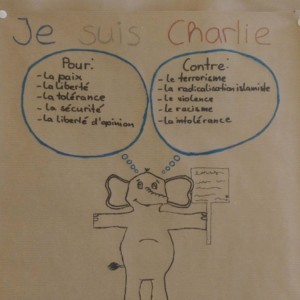 Je suis Charlie
Pour:
- la paix
- la liberté
- la tolérance
- la sécurité
- la liberté d'opinion
Contre:
- le terrorisme
- la radicalisation islamiste
- le violence
- le racisme
- la intolérance